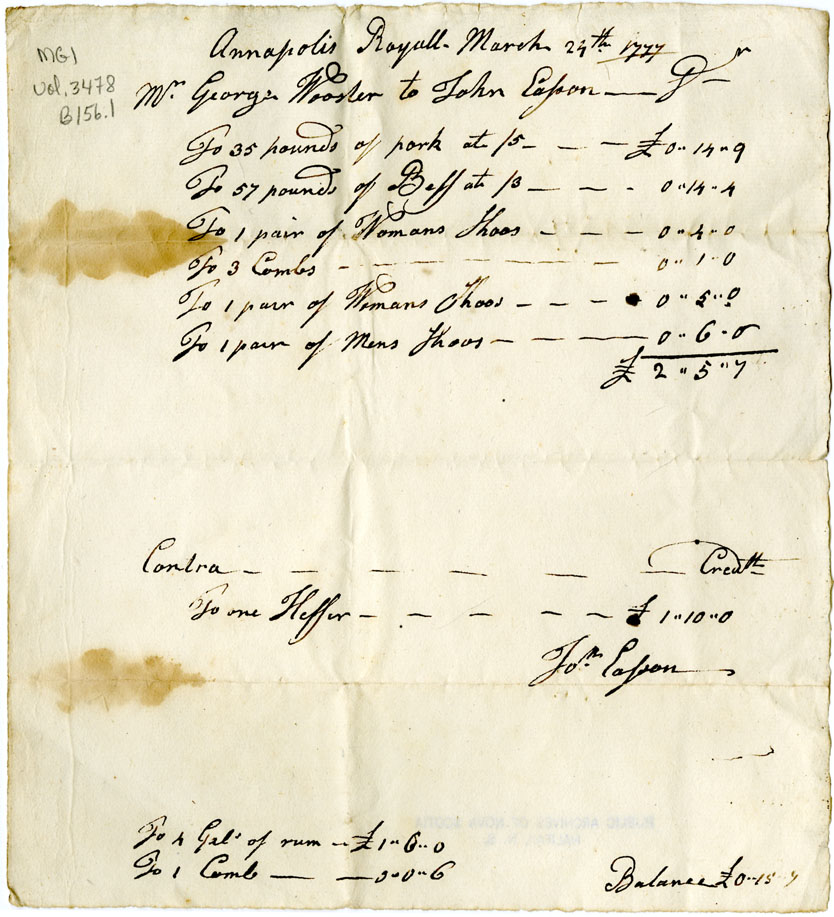 MG1
Vol. 3478
B156.1
Annapolis Royall March 24th 1777
Mr George Wooster to John Easson — Dr
To 35 pounds of pork at /5 — — — £ 0 " 14 " 9
To 57 pounds of Beff at /3 — — - 0 " 14 " 4
To 1 pair of Womans Shoos — — — — 0 " 4 " 0
To 3 Combs — — — — — — 0 " 1 " 0
To 1 pair of Womans Shoos — — — 0 " 5 " 0
To 1 pair of Mens Shoos — — — 0 " 6 " 0
£ 2 " 5 " 7
Contra — — — — — — Credtt
To one Heffer — — — — — £ 1 " 10 " 0
Jon Easson
PUBLIC ARCHIVES OF NOVA SCOTIA
HALIFAX, N. S.
To 4 Gals of rum — £ 1 " 6 " 0
To 1 Comb — — 0 " 0 " 6
Balance £ 0 " 15 " 7